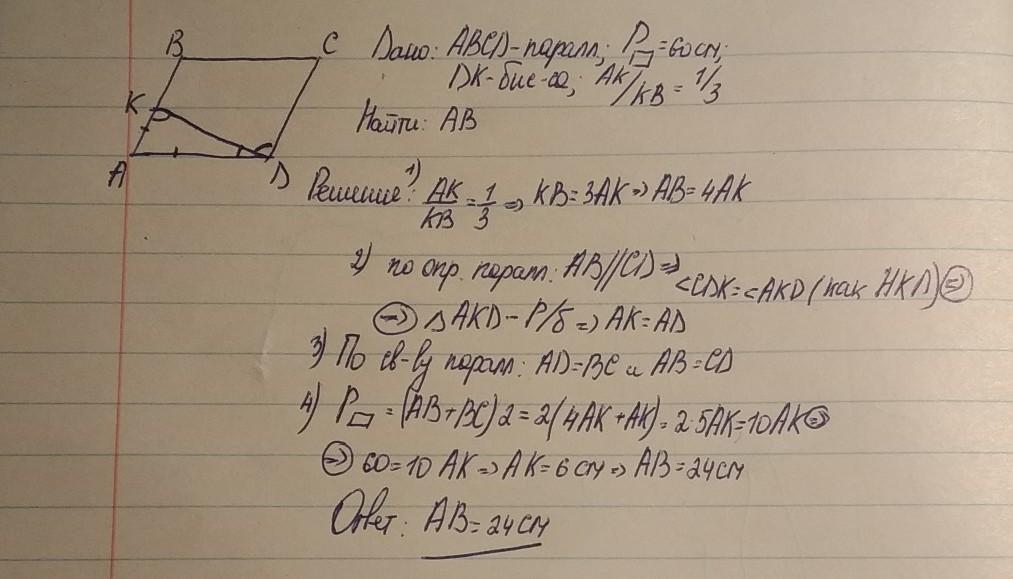 B C
K
A D
Дано: ABCD-паралл; P▱=60см;
DK-бис-са; AK/KB=1/3
Найти: AB
Решение: 1) AK/KB=1/3 => KB=3AK => AB=4AK
2) по опр. паралл: AB//CD =>
∠CDK=∠AKD (как НКЛ) =>
=> △AKD-Р/б => AK=AD
3) По св-ву паралл: AD=BC и AB=CD
4) P▱=(AB+BC)2=2(4AK+AK)=2·5AK=10AK =>
=> 60=10AK => AK=6см => AB=24см
Ответ: AB=24см